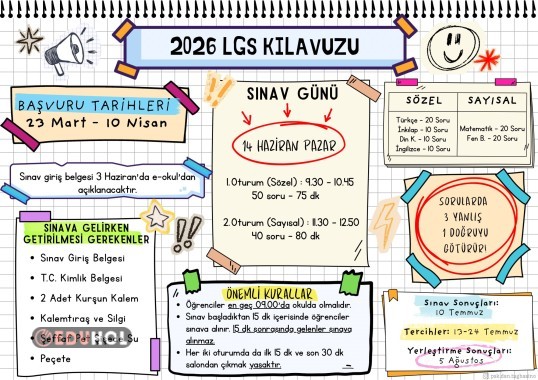 2026 LGS KILAVUZU
BAŞVURU TARİHLERİ
23 Mart - 10 Nisan
Sınav giriş belgesi 3 Haziran'da e-okul'dan
açıklanacaktır.
SINAVA GELİRKEN
GETİRİLMESİ GEREKENLER
• Sınav Giriş Belgesi
• T.C. Kimlik Belgesi
• 2 Adet Kurşun Kalem
• Kalemtıraş ve Silgi
• Şeffaf Su
• Peçete
SINAV GÜNÜ
14 HAZİRAN PAZAR
1.Oturum (Sözel) : 9.30 - 10.45
50 soru - 75 dk
2.Oturum (Sayısal) : 11.30 - 12.50
40 soru - 80 dk
ÖNEMLİ KURALLAR
• Öğrenciler en geç 09.00'da okulda olmalıdır.
• Sınav başladıktan 15 dk içerisinde öğrenciler
sınava alınır. 15 dk sonrasında gelenler sınava
alınmaz.
• Her iki oturumda da ilk 15 dk ve son 30 dk
salondan çıkmak yasaktır.
SÖZEL SAYISAL
Türkçe - 20 Soru
İnkılap - 10 Soru
Din K. - 10 Soru
İngilizce - 10 Soru
Matematik - 20 Soru
Fen B. - 20 Soru
SORULARDA
3 YANLIŞ
1 DOĞRUYU
GÖTÜRÜR!
Sınav Sonuçları:
10 Temmuz
Tercihler: 13-24 Temmuz
Yerleştirme Sonuçları:
5 Ağustos